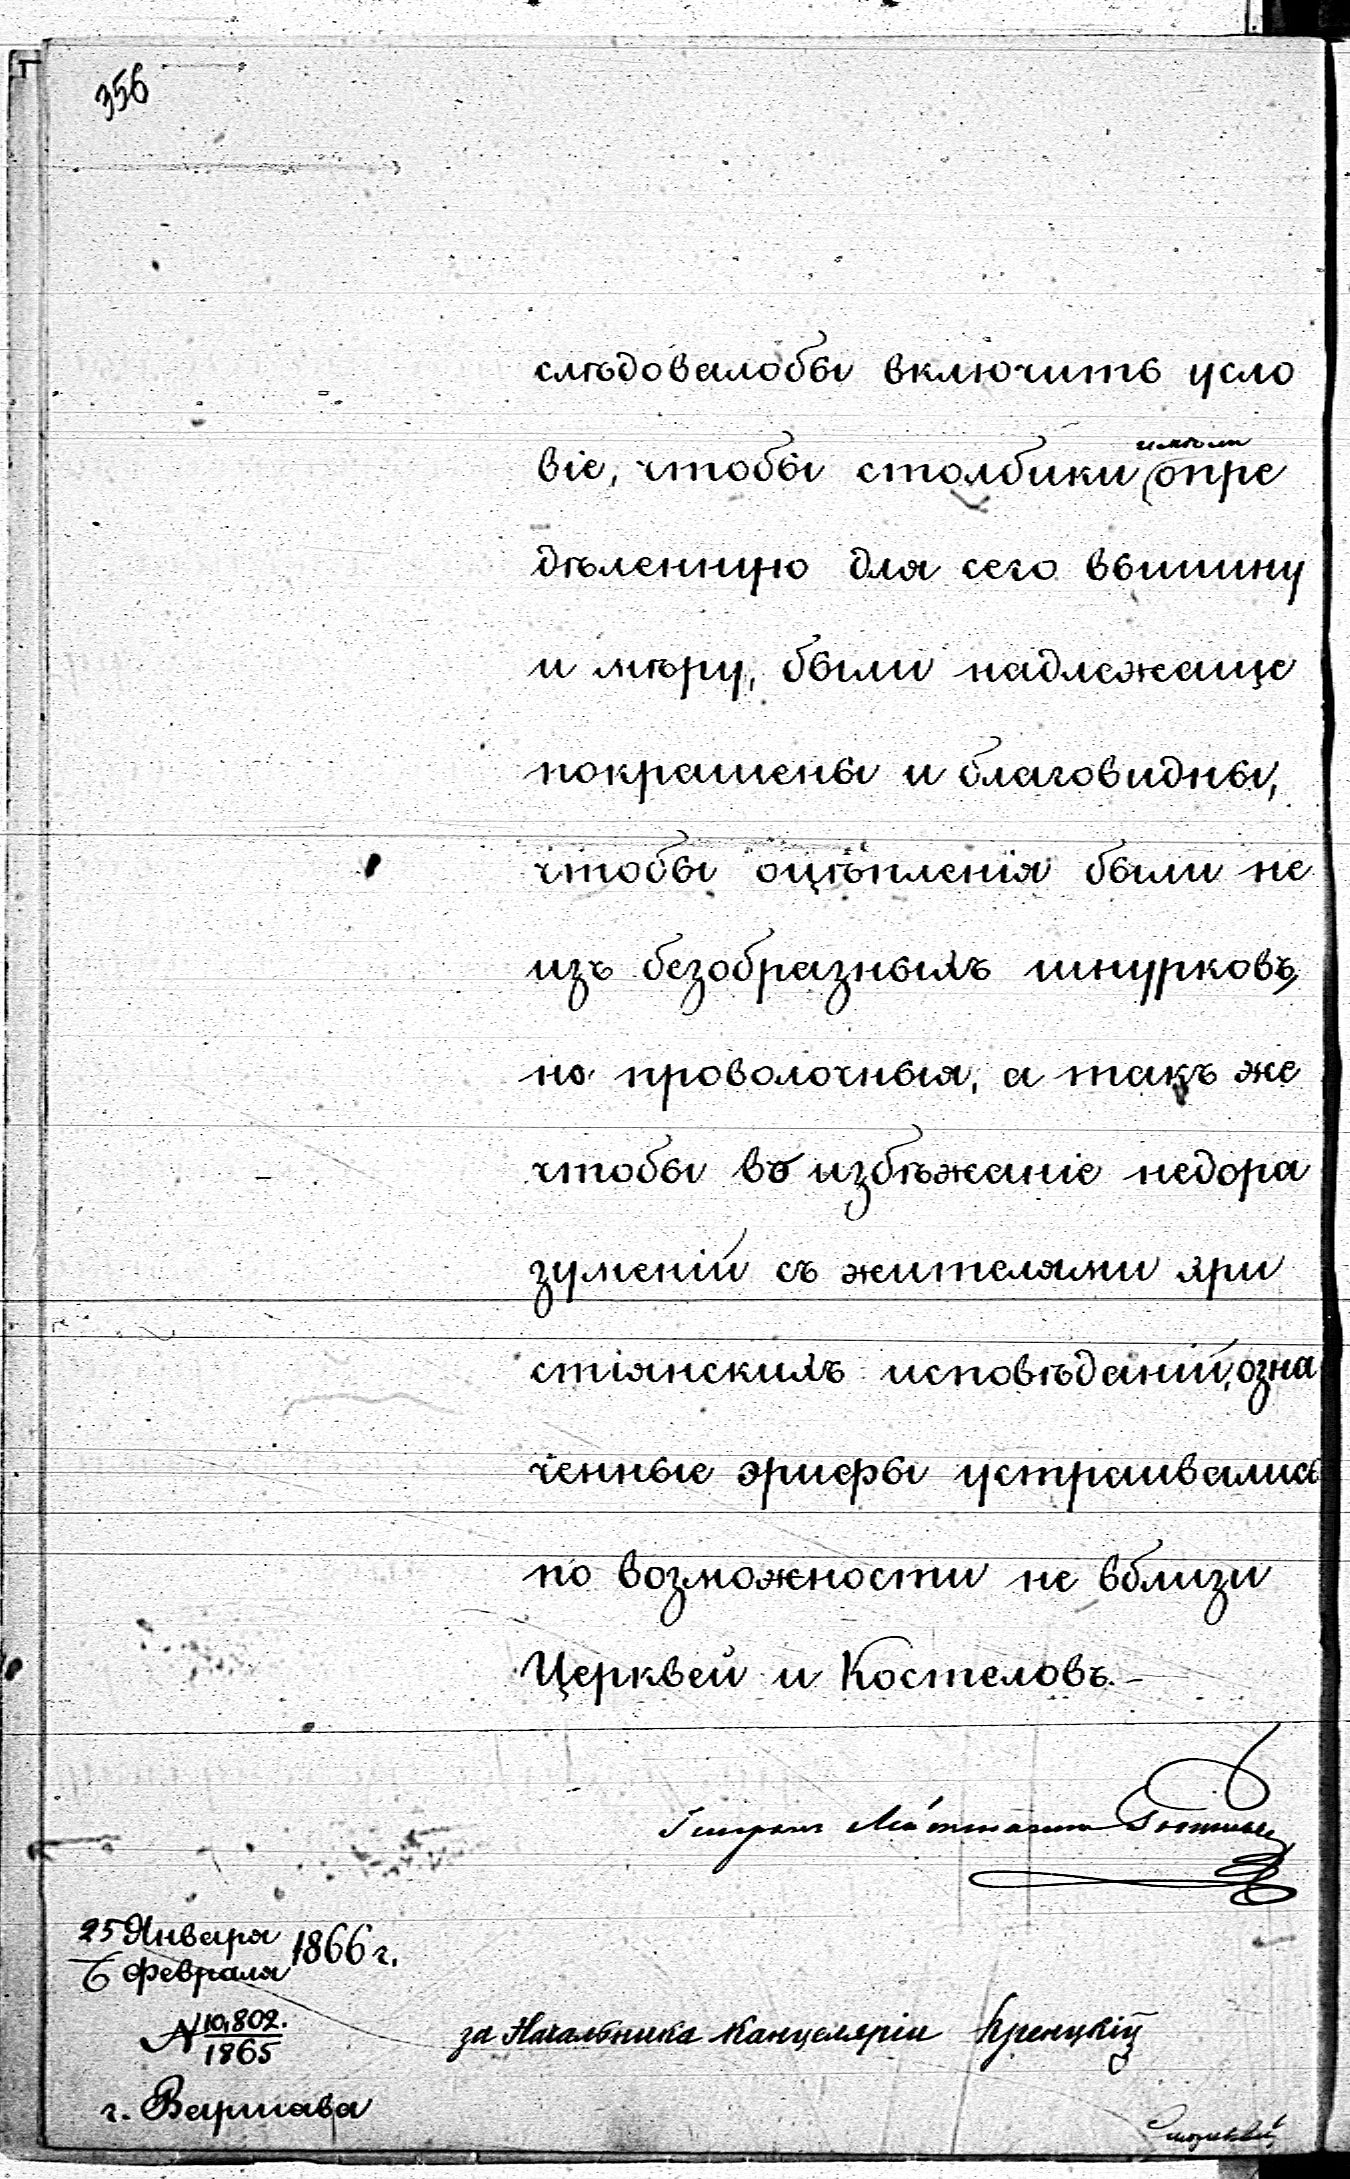 356
слѣдовалобы включить усло
віе, чтобы столбики имѣли опре
дѣленную для сего вышину
и мѣру, были надлежаще
покрашены и благовидны,
чтобы оцѣпленія были не
изъ безобразныхъ шнурковъ,
но проволочныя, а такъ же
чтобы во избѣжаніе недора
зуменій съ жителями хри
стіянскихъ исповѣданій, озна
ченные эриефы устраивались
по возможности не вблизи
Церквей и Костеловъ.-
Генералъ Лейтенантъ
25 Января
6 Февраля 1866 г.
N 10,802.
1865
за Начальника Канцеляріи Кренцкій
г. Варшава